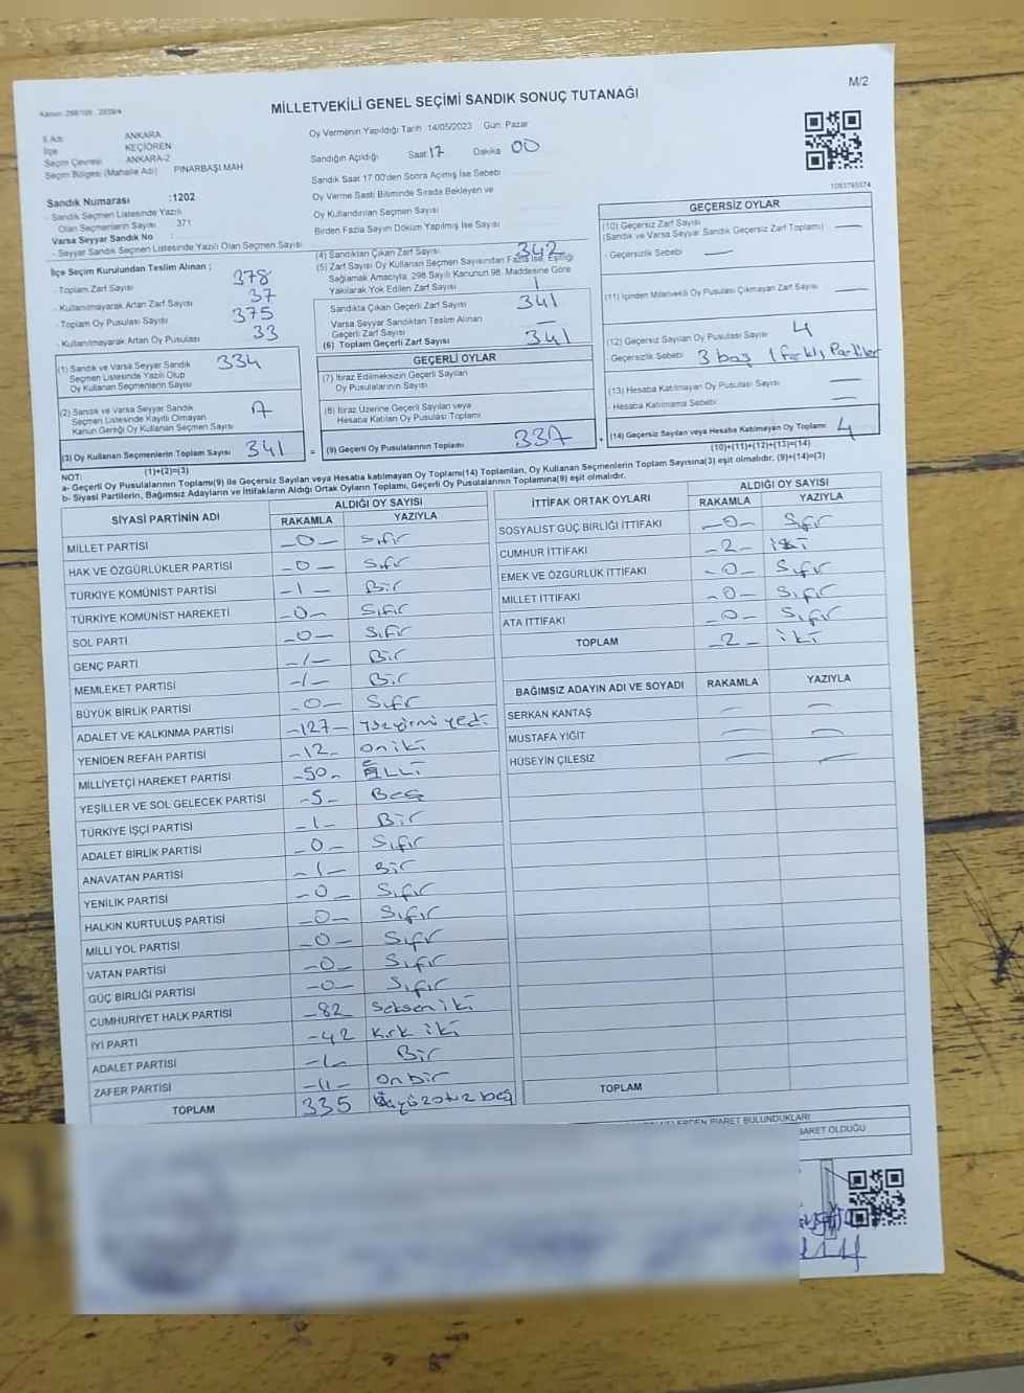 M/2
MİLLETVEKİLİ GENEL SEÇİMİ SANDIK SONUÇ TUTANAĞI
İl Adı ANKARA
İlçe KEÇİÖREN
Seçim Çevresi ANKARA-2
Seçim Bölgesi (Mahalle Adı) PINARBAŞI MAH
Oy Vermenin Yapıldığı Tarih 14/05/2023 Gün: Pazar
Sandığın Açıldığı Saat 17 Dakika 00
Sandık Saat 17:00'den Sonra Açılmış İse Sebebi
Oy Verme Saati Bitiminde Sırada Bekleyen ve
Oy Kullandırılan Seçmen Sayısı
Birden Fazla Sayım Döküm Yapılmış İse Sayısı
Sandık Numarası :1202
- Sandık Seçmen Listesinde Yazılı
Olan Seçmenlerin Sayısı 371
Varsa Seyyar Sandık No :
- Seyyar Sandık Seçmen Listesinde Yazılı Olan Seçmen Sayısı
İlçe Seçim Kurulundan Teslim Alınan :
- Toplam Zarf Sayısı 378
- Kullanılmayarak Artan Zarf Sayısı 37
- Toplam Oy Pusulası Sayısı 375
- Kullanılmayarak Artan Oy Pusulası 33
(1) Sandık ve Varsa Seyyar Sandık
Seçmen Listesinde Yazılı Olup
Oy Kullanan Seçmenlerin Sayısı 334
(2) Sandık ve Varsa Seyyar Sandık
Seçmen Listesinde Kayıtlı Olmayan
Kanun Gereği Oy Kullanan Seçmen Sayısı 7
(3) Oy Kullanan Seçmenlerin Toplam Sayısı 341
(1)+(2)=(3)
(4) Sandıktan Çıkan Zarf Sayısı 342
(5) Zarf Sayısı Oy Kullanan Seçmen Sayısından Fazla İse, Eşitliği
Sağlamak Amacıyla, 298 Sayılı Kanunun 98. Maddesine Göre
Yakılarak Yok Edilen Zarf Sayısı 1
Sandıkta Çıkan Geçerli Zarf Sayısı 341
Varsa Seyyar Sandıktan Teslim Alınan
Geçerli Zarf Sayısı —
(6) Toplam Geçerli Zarf Sayısı 341
GEÇERLİ OYLAR
(7) İtiraz Edilmeksizin Geçerli Sayılan
Oy Pusulalarının Sayısı
(8) İtiraz Üzerine Geçerli Sayılan veya
Hesaba Katılan Oy Pusulası Toplamı
= (9) Geçerli Oy Pusulalarının Toplamı 337
GEÇERSİZ OYLAR
(10) Geçersiz Zarf Sayısı
(Sandık ve Varsa Seyyar Sandık Geçersiz Zarf Toplamı) —
- Geçersizlik Sebebi —
(11) İçinden Milletvekili Oy Pusulası Çıkmayan Zarf Sayısı —
(12) Geçersiz Sayılan Oy Pusulası Sayısı 4
- Geçersizlik Sebebi 3 boş 1 farklı Partiler
(13) Hesaba Katılmayan Oy Pusulası Sayısı —
- Hesaba Katılmama Sebebi —
+ (14) Geçersiz Sayılan veya Hesaba Katılmayan Oy Toplamı 4
(10)+(11)+(12)+(13)=(14)
NOT:
a- Geçerli Oy Pusulalarının Toplamı(9) ile Geçersiz Sayılan veya Hesaba katılmayan Oy Toplamı(14) Toplamları, Oy Kullanan Seçmenlerin Toplam Sayısına(3) eşit olmalıdır. (9)+(14)=(3)
b- Siyasi Partilerin, Bağımsız Adayların ve İttifakların Aldığı Ortak Oyların Toplamı, Geçerli Oy Pusulalarının Toplamına(9) eşit olmalıdır.
SİYASİ PARTİNİN ADI ALDIĞI OY SAYISI
RAKAMLA YAZIYLA
MİLLET PARTİSİ —0— Sıfır
HAK VE ÖZGÜRLÜKLER PARTİSİ —0— Sıfır
TÜRKİYE KOMÜNİST PARTİSİ —1— Bir
TÜRKİYE KOMÜNİST HAREKETİ —0— Sıfır
SOL PARTİ —0— Sıfır
GENÇ PARTİ —1— Bir
MEMLEKET PARTİSİ —1— Bir
BÜYÜK BİRLİK PARTİSİ —0— Sıfır
ADALET VE KALKINMA PARTİSİ —127—
YENİDEN REFAH PARTİSİ —12— on iki
MİLLİYETÇİ HAREKET PARTİSİ —50— ELLİ
YEŞİLLER VE SOL GELECEK PARTİSİ —5— Beş
TÜRKİYE İŞÇİ PARTİSİ —1— Bir
ADALET BİRLİK PARTİSİ —0— Sıfır
ANAVATAN PARTİSİ —1— Bir
YENİLİK PARTİSİ —0— Sıfır
HALKIN KURTULUŞ PARTİSİ —0— Sıfır
MİLLİ YOL PARTİSİ —0— Sıfır
VATAN PARTİSİ —0— Sıfır
GÜÇ BİRLİĞİ PARTİSİ —0— Sıfır
CUMHURİYET HALK PARTİSİ —82 Seksen iki
İYİ PARTİ —42 Kırk iki
ADALET PARTİSİ —1— Bir
ZAFER PARTİSİ —11— on bir
TOPLAM 335 üçyüzotuz beş
İTTİFAK ORTAK OYLARI ALDIĞI OY SAYISI
RAKAMLA YAZIYLA
SOSYALİST GÜÇ BİRLİĞİ İTTİFAKI —0— Sıfır
CUMHUR İTTİFAKI —2— iki
EMEK VE ÖZGÜRLÜK İTTİFAKI —0— Sıfır
MİLLET İTTİFAKI —0— Sıfır
ATA İTTİFAKI —0— Sıfır
TOPLAM —2— iki
BAĞIMSIZ ADAYIN ADI VE SOYADI RAKAMLA YAZIYLA
SERKAN KANTAŞ — —
MUSTAFA YİĞİT — —
HÜSEYİN ÇİLESİZ — —
TOPLAM